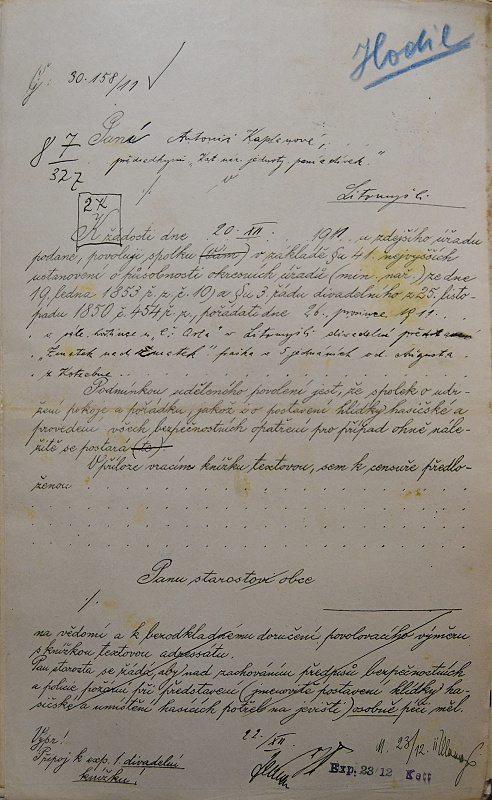 Hodil
Čj: 30.158/11
87/327
Paní Antonii Kaplanové,
předsedkyni „Kat. ner. jednoty paní a dívek."
Litomyšli
2 K
K žádosti dne 20. XII. 1911. u zdejšího úřadu
podané, povoluji spolku (Vám) v základě §u 41. nejvyšších
ustanovení o působnosti okresních úřadů (min. nař.) ze dne
19. ledna 1853 ř. z. č. 10) a §u 3. řádu divadelního z 25. listo-
padu 1850 č. 454 ř. z., pořádati dne 26. prosince 1911.
v hotince u „Čí Orla" v Litomyšli divadelní
„Zmatek nad zmatek" fraška v 5 jednáních od Augusta
z Kotzebue.
Podmínkou uděleného povolení jest, že spolek o udr-
žení pokoje a pořádku, jakož i o postavení hlídky hasičské a
provedení všech bezpečnostních opatření pro případ ohně nále-
žitě se postará
V příloze vracím knížku textovou, sem k censuře předlo-
ženou
Panu starostovi obce
na vědomí a k bezodkladnému doručení povolovacího výměru
s knížkou textovou adressátu.
Pan starosta se žádá, aby nad zachováním předpisů bezpečnostních
a policie požární při představení (jmenovitě postavení hlídky ha-
sičské a umístění hasících potřeb na jevišti) osobně péči měl.
Vypr!
Připoj k exp. 1. divadelní
knížku.
22./XII.
23/12.
Exp. 23/12